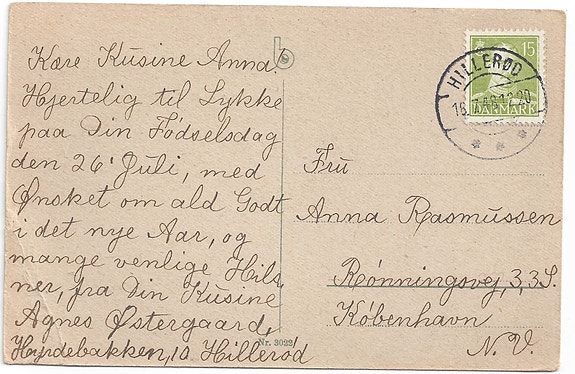 Kære Kusine Anna!
Hjertelig til Lykke
paa Din Fødselsdag
den 26' Juli, med
Ønsket om ald Godt
i det nye Aar, og
mange venlige Hils
ner, fra Din Kusine
Agnes Østergaard,
Hyrdebakken, 10. Hillerød
Nr. 3022
15
DANMARK
HILLERØD
Fru
Anna Rasmussen
Rønningsvej, 3, 3S.
København
N.V.